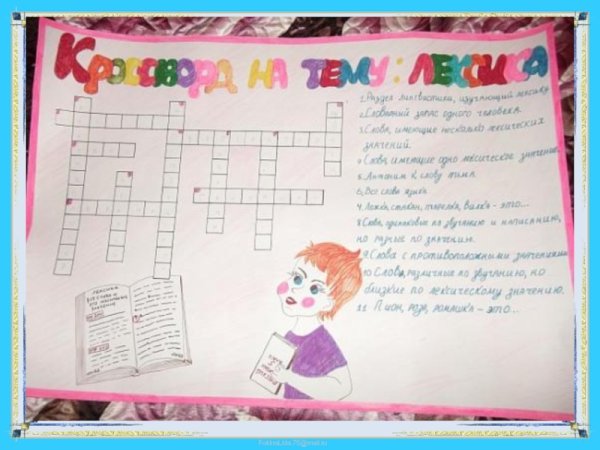 Кроссворд на тему: лексика
1. Раздел лингвистики, изучающий лексику.
2. Словарный запас одного человека.
3. Слова, имеющие несколько лексических
значений.
4. Слова, имеющие одно лексическое значение.
5. Антоним к слову тьма.
6. Все слова языка
7. Ложка, стакан, тарелка, вилка - это...
8. Слова, одинаковые по звучанию и написанию,
но разные по значению.
9. Слова с противоположными значениями
10. Слова, различные по звучанию, но
близкие по лексическому значению.
11. Пион, роза, ромашка - это...
ЛЕКСИКА
ВСЕ СЛОВА И